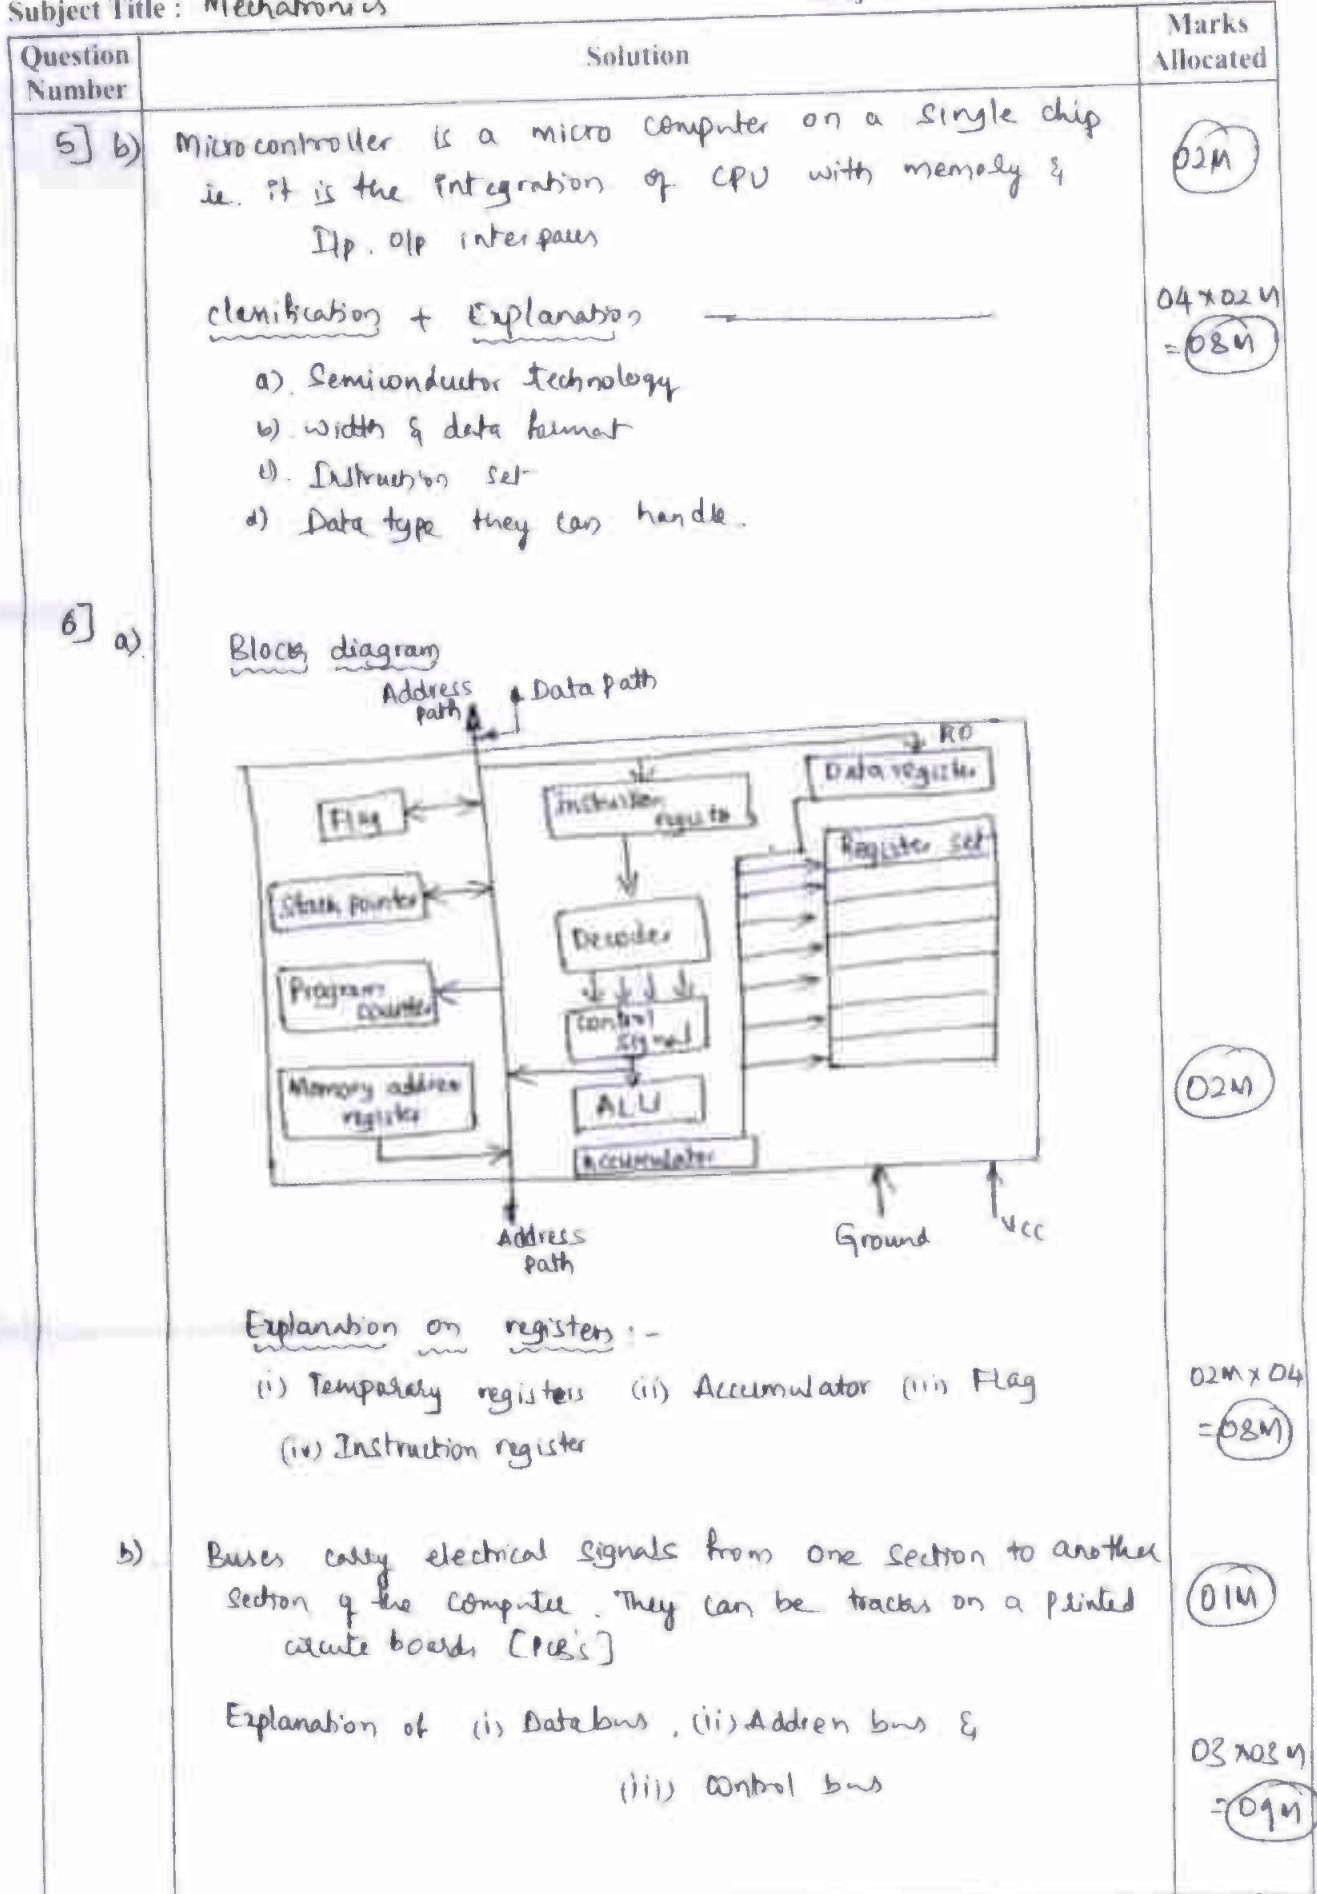 Subject Title : Mechatronics
Question Number
Solution
Marks Allocated
5] b) Microcontroller is a micro computer on a single chip
02M
ie. it is the integration of CPU with memory &
I/p. O/p interfaces
classification + Explanation
04 x 02M
= 08M
a). Semiconductor technology
b). width & data format
c). Instruction set
d) Data type they can handle.
6] a).
Block diagram
Address path
Data path
R0
Data register
Flag
instruction register
Register set
Stack pointer
Decoder
Program counter
control signal
Memory address register
ALU
Accumulator
02M
Address path
Ground
Vcc
Explanation on registers :-
(i) Temporary registers (ii) Accumulator (iii) Flag
02M x 04
(iv) Instruction register
= 08M
b) Buses carry electrical signals from one section to another
section of the computer. They can be tracks on a printed
01M
circute boards [PCB's]
Explanation of (i) Databus, (ii) Address bus &
(iii) control bus
03 x 03M
= 09M